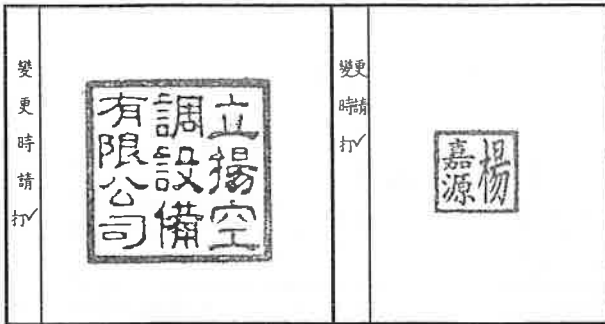 變更時請打✓
立揚空
調設備
有限公司
變更時請打✓
楊
嘉源